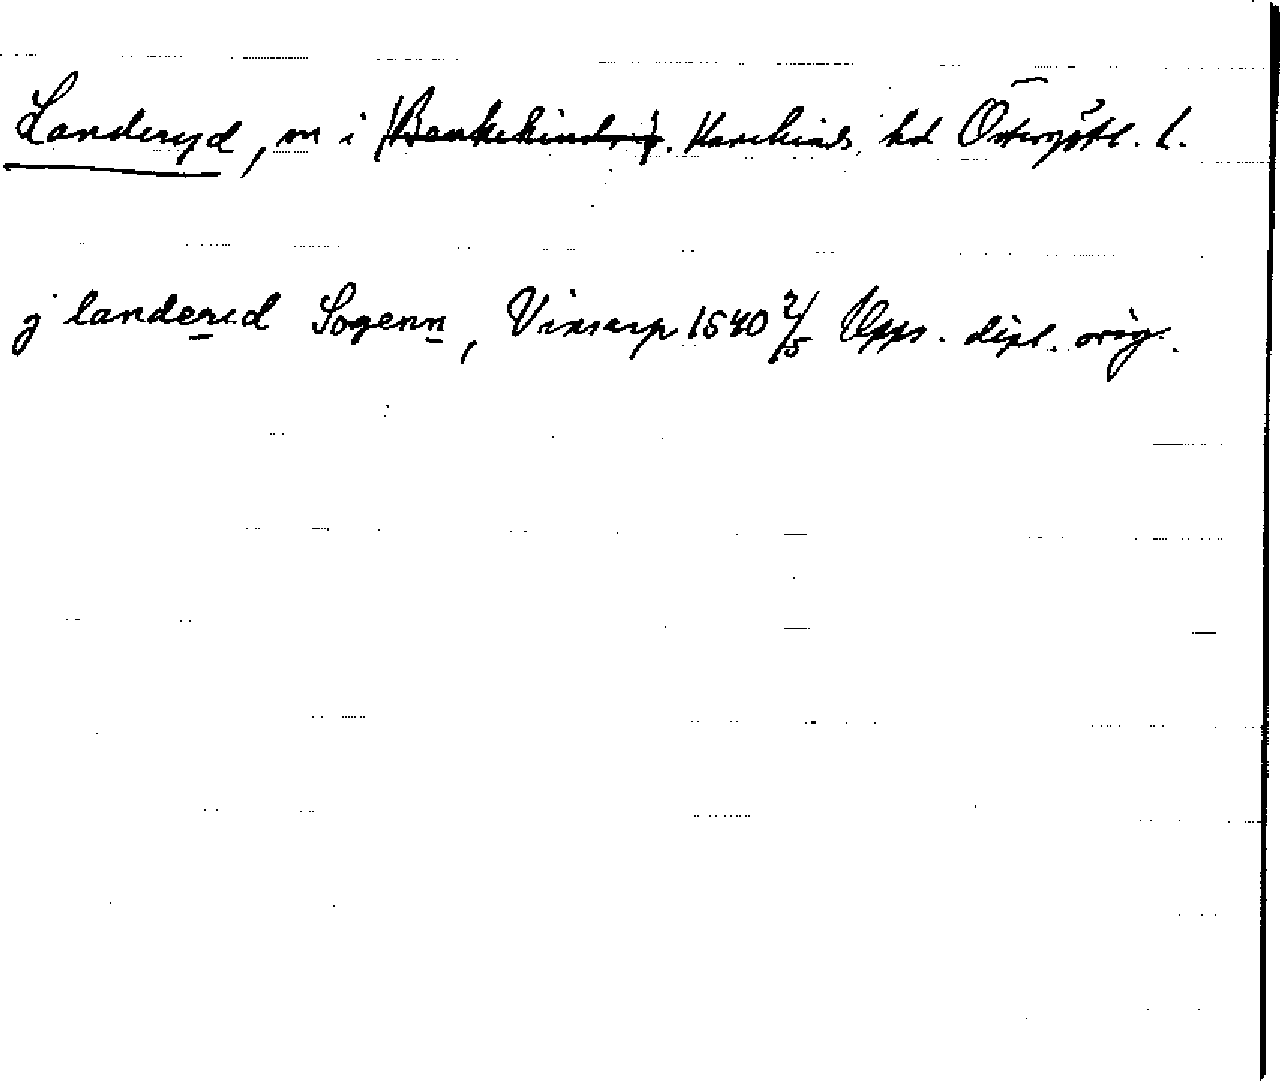 Landeryd, sn i (Bankekinds). Hanekinds hd Östergötl. l.
j landered Sogenn, Vimarp 1540 2/5 Upps. dipl. orig.